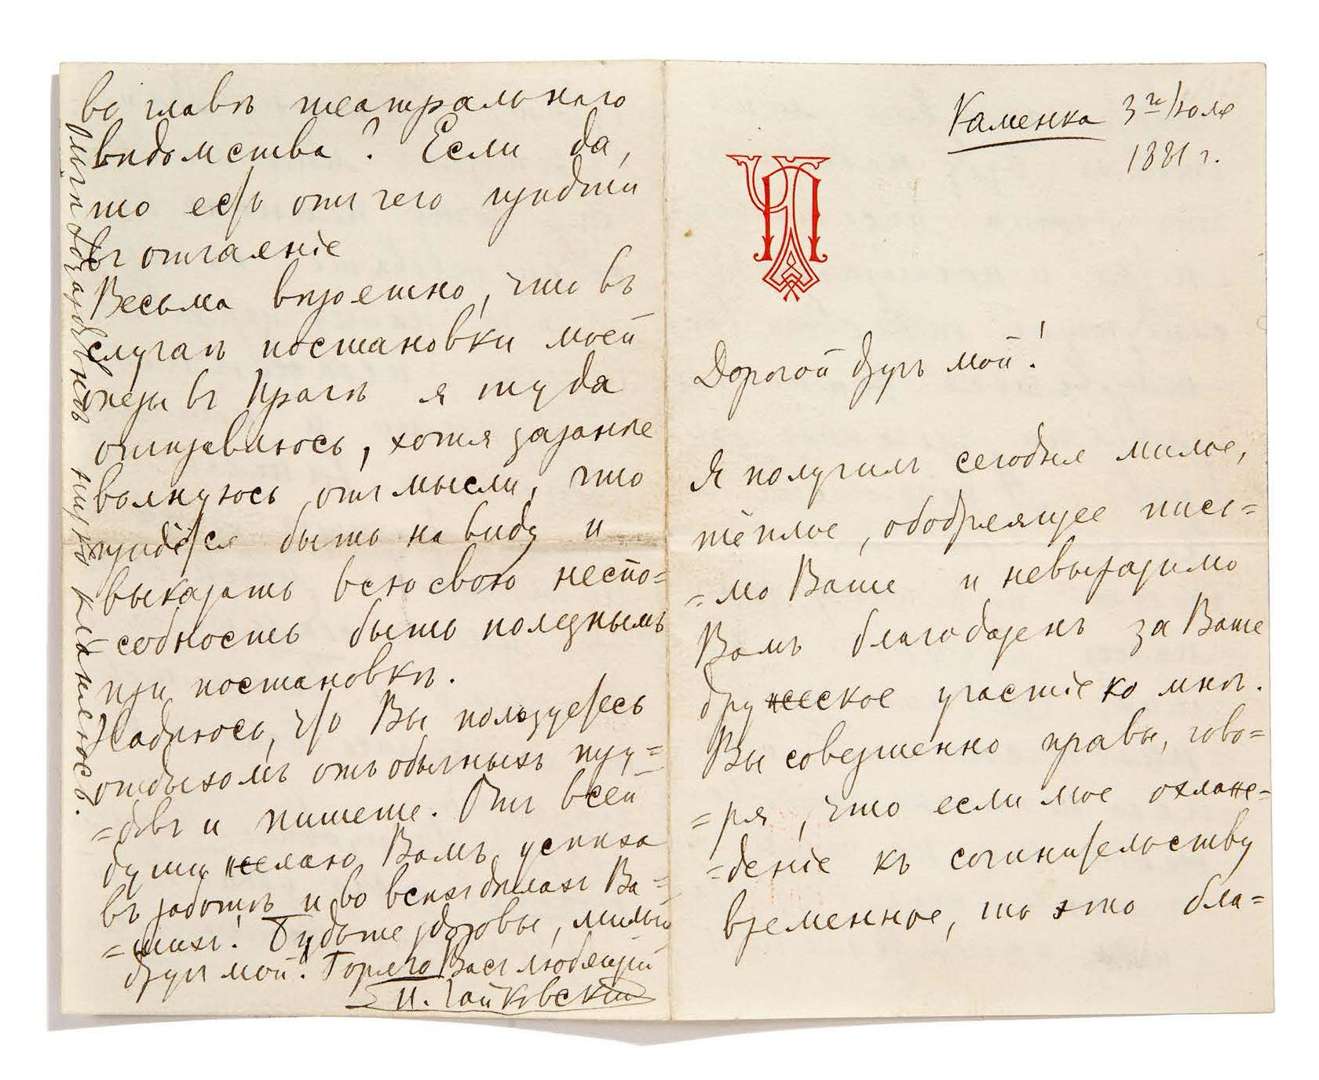 Каменка 3го Іюля
1881 г.
ПЧ
Дорогой другъ мой!
Я получилъ сегодня милое,
тёплое, ободряющее пись=
=мо Ваше и невыразимо
Вамъ благодаренъ за Ваше
дружеское участіе ко мнѣ.
Вы совершенно правы, гово=
=ря, что если мое охлаж=
=деніе къ сочинительству
временное, то это бла=
во главѣ театральнаго
вѣдомства? Если да,
то есть отъ чего придти
въ отчаяніе
Весьма вѣроятно, что въ
случаѣ постановки моей
оперы въ Прагѣ я туда
отправлюсь, хотя заранѣе
волнуюсь отъ мысли, что
придётся быть на виду и
выказать всю свою неспо=
=собность быть полезнымъ
при постановкѣ.
Надѣюсь, что Вы пользуетесь
отдыхомъ отъ обычныхъ тру=
=довъ и пишете. Отъ всей
души желаю Вамъ успѣха
въ работѣ и во всѣхъ дѣлахъ Ва=
=шихъ! Будьте здоровы, милый
другъ мой! Горячо Васъ любящій
П. Чайковскій
низко кланяюсь.